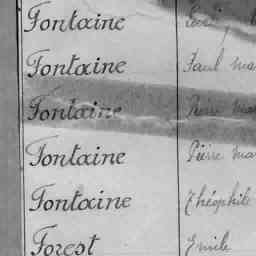 Fontaine
Fontaine Paul
Fontaine Pierre
Fontaine Pierre
Fontaine Théophile
Forest Emile